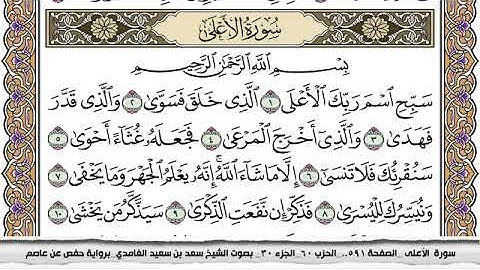 سُورَةُ الأَعْلَىٰ
بِسْمِ اللَّهِ الرَّحْمَٰنِ الرَّحِيمِ
سَبِّحِ اسْمَ رَبِّكَ الْأَعْلَى ١ الَّذِي خَلَقَ فَسَوَّىٰ ٢ وَالَّذِي قَدَّرَ
فَهَدَىٰ ٣ وَالَّذِي أَخْرَجَ الْمَرْعَىٰ ٤ فَجَعَلَهُ غُثَاءً أَحْوَىٰ ٥
سَنُقْرِئُكَ فَلَا تَنسَىٰ ٦ إِلَّا مَا شَاءَ اللَّهُ إِنَّهُ يَعْلَمُ الْجَهْرَ وَمَا يَخْفَىٰ ٧
وَنُيَسِّرُكَ لِلْيُسْرَىٰ ٨ فَذَكِّرْ إِن نَّفَعَتِ الذِّكْرَىٰ ٩ سَيَذَّكَّرُ مَن يَخْشَىٰ ١٠
سورة الأعلى _الصفحة ٥٩١.. الحزب ٦٠_ الجزء ٣٠_ بصوت الشيخ سعد بن سعيد الغامدي_ برواية حفص عن عاصم